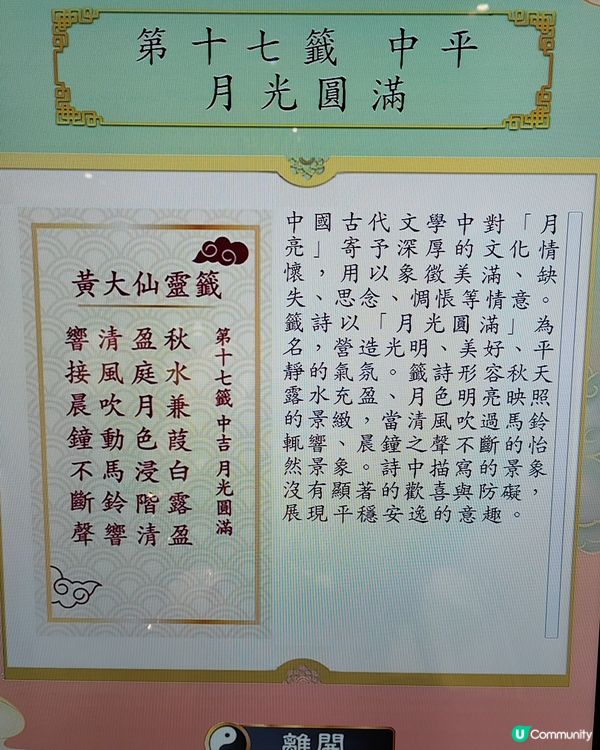 第十七籤 中平
月光圓滿
黃大仙靈籤
第十七籤 中吉 月光圓滿
秋水兼葭白露盈
盈庭月色浸階清
清風吹動馬鈴響
響接晨鐘不斷聲
中國古代文學中對「月
亮」寄予深厚的文化情
懷，用以象徵美滿、缺
失、思念、惆悵等情意。
籤詩以「月光圓滿」為
名，營造光明、美好、平
靜的氣氛。籤詩形容秋天
露水充盈、月色明亮映照
的景緻，當清風吹過馬鈴
輒響、晨鐘之聲不斷的怡
然景象。詩中描寫的景象，
沒有顯著的歡喜與防礙，
展現平穩安逸的意趣。
離開
U Community